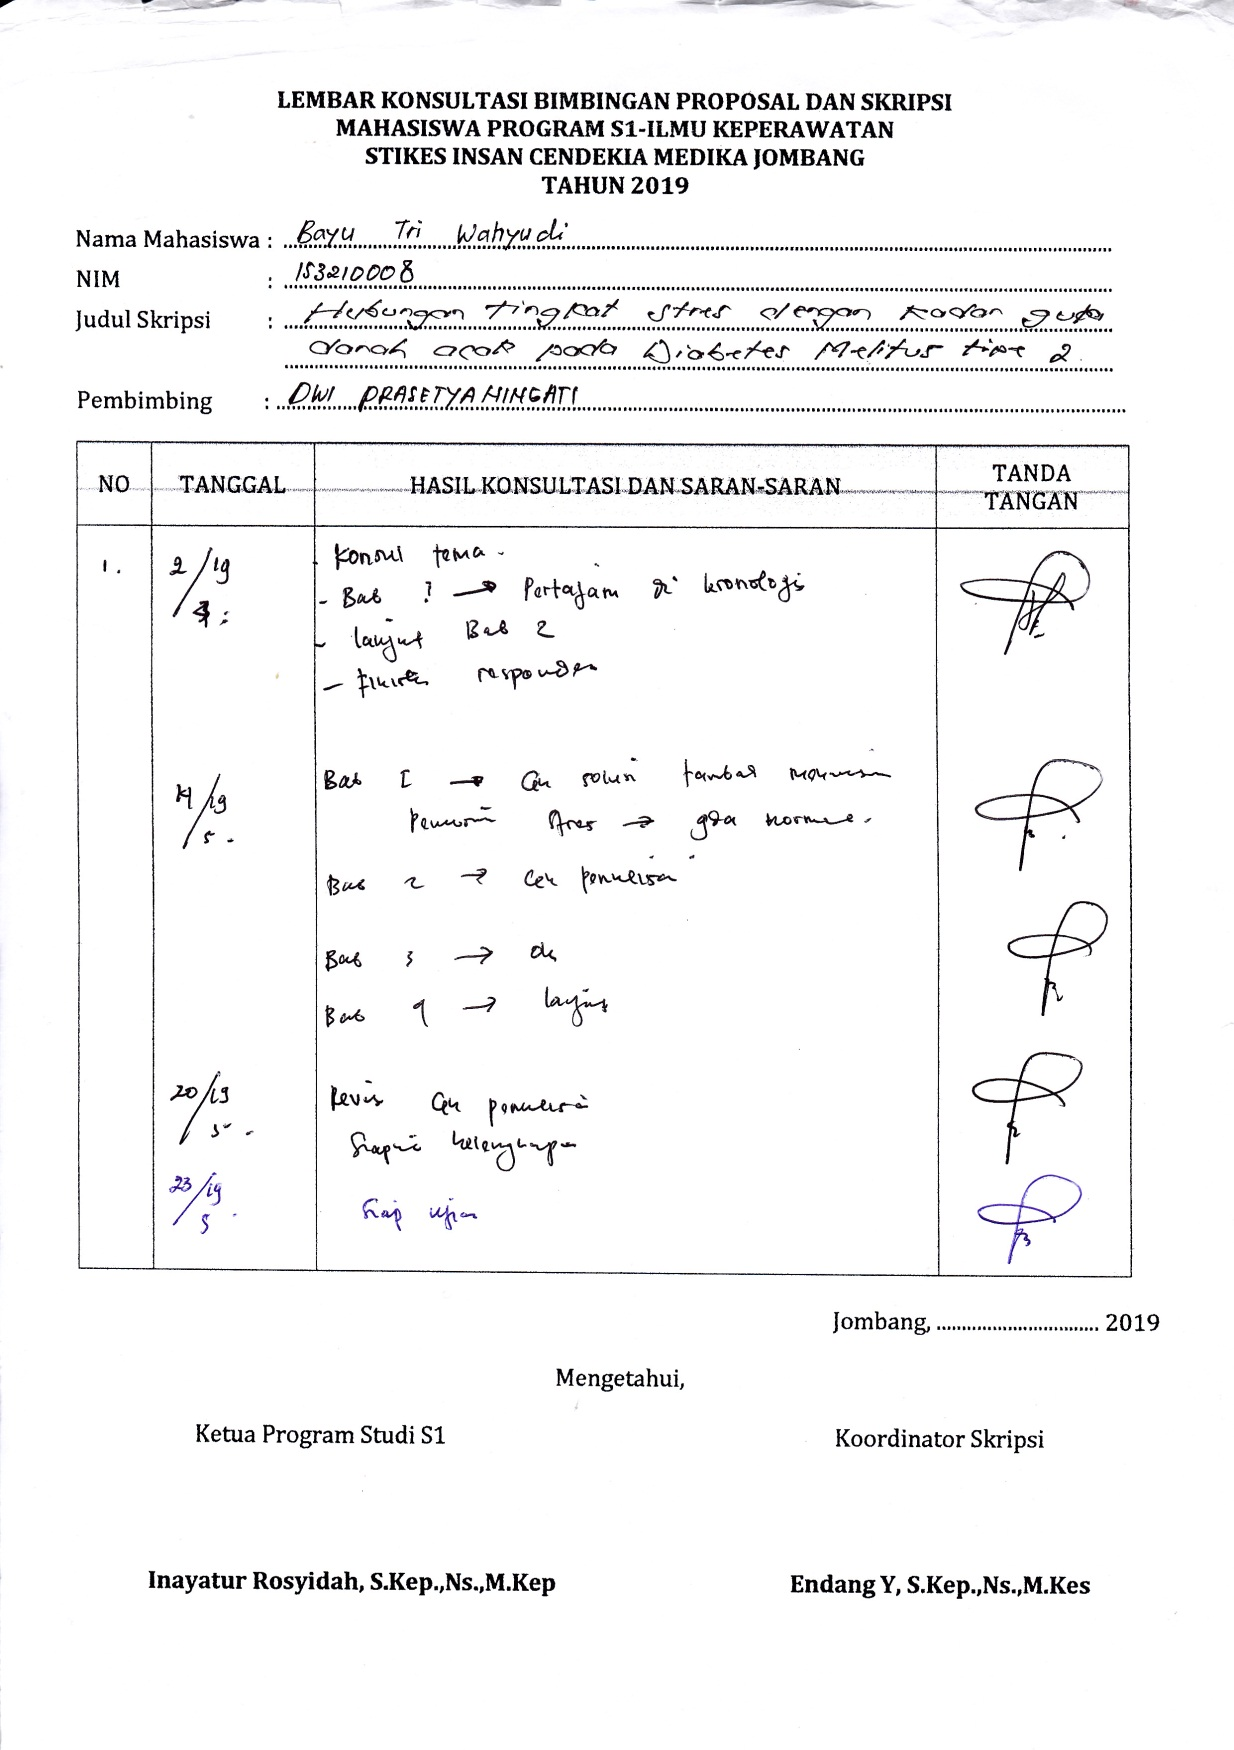 LEMBAR KONSULTASI BIMBINGAN PROPOSAL DAN SKRIPSI
MAHASISWA PROGRAM S1-ILMU KEPERAWATAN
STIKES INSAN CENDEKIA MEDIKA JOMBANG
TAHUN 2019
Nama Mahasiswa : Bayu Tri Wahyudi
NIM : 153210008
Judul Skripsi : Hubungan tingkat stres dengan kadar gula
darah acak pada Diabetes Melitus tipe 2.
Pembimbing : DWI PRASETYA NINGATI
NO TANGGAL HASIL KONSULTASI DAN SARAN-SARAN TANDA TANGAN
1. 2/19 - Konsul tema -
- Bab 1 → Pertajam di kronologi
- lanjut Bab 2
- responden
14/19 5 - Bab I → Cek solusi
→ gda
Bab 2 → Cek penulisan
Bab 3 → ok
Bab 4 → lanjut
20/19 5 - Revisi Cek penulisan
Siapkan kelengkapan
23/19 5 Siap ujian
Jombang, ................................ 2019
Mengetahui,
Ketua Program Studi S1 Koordinator Skripsi
Inayatur Rosyidah, S.Kep.,Ns.,M.Kep Endang Y, S.Kep.,Ns.,M.Kes